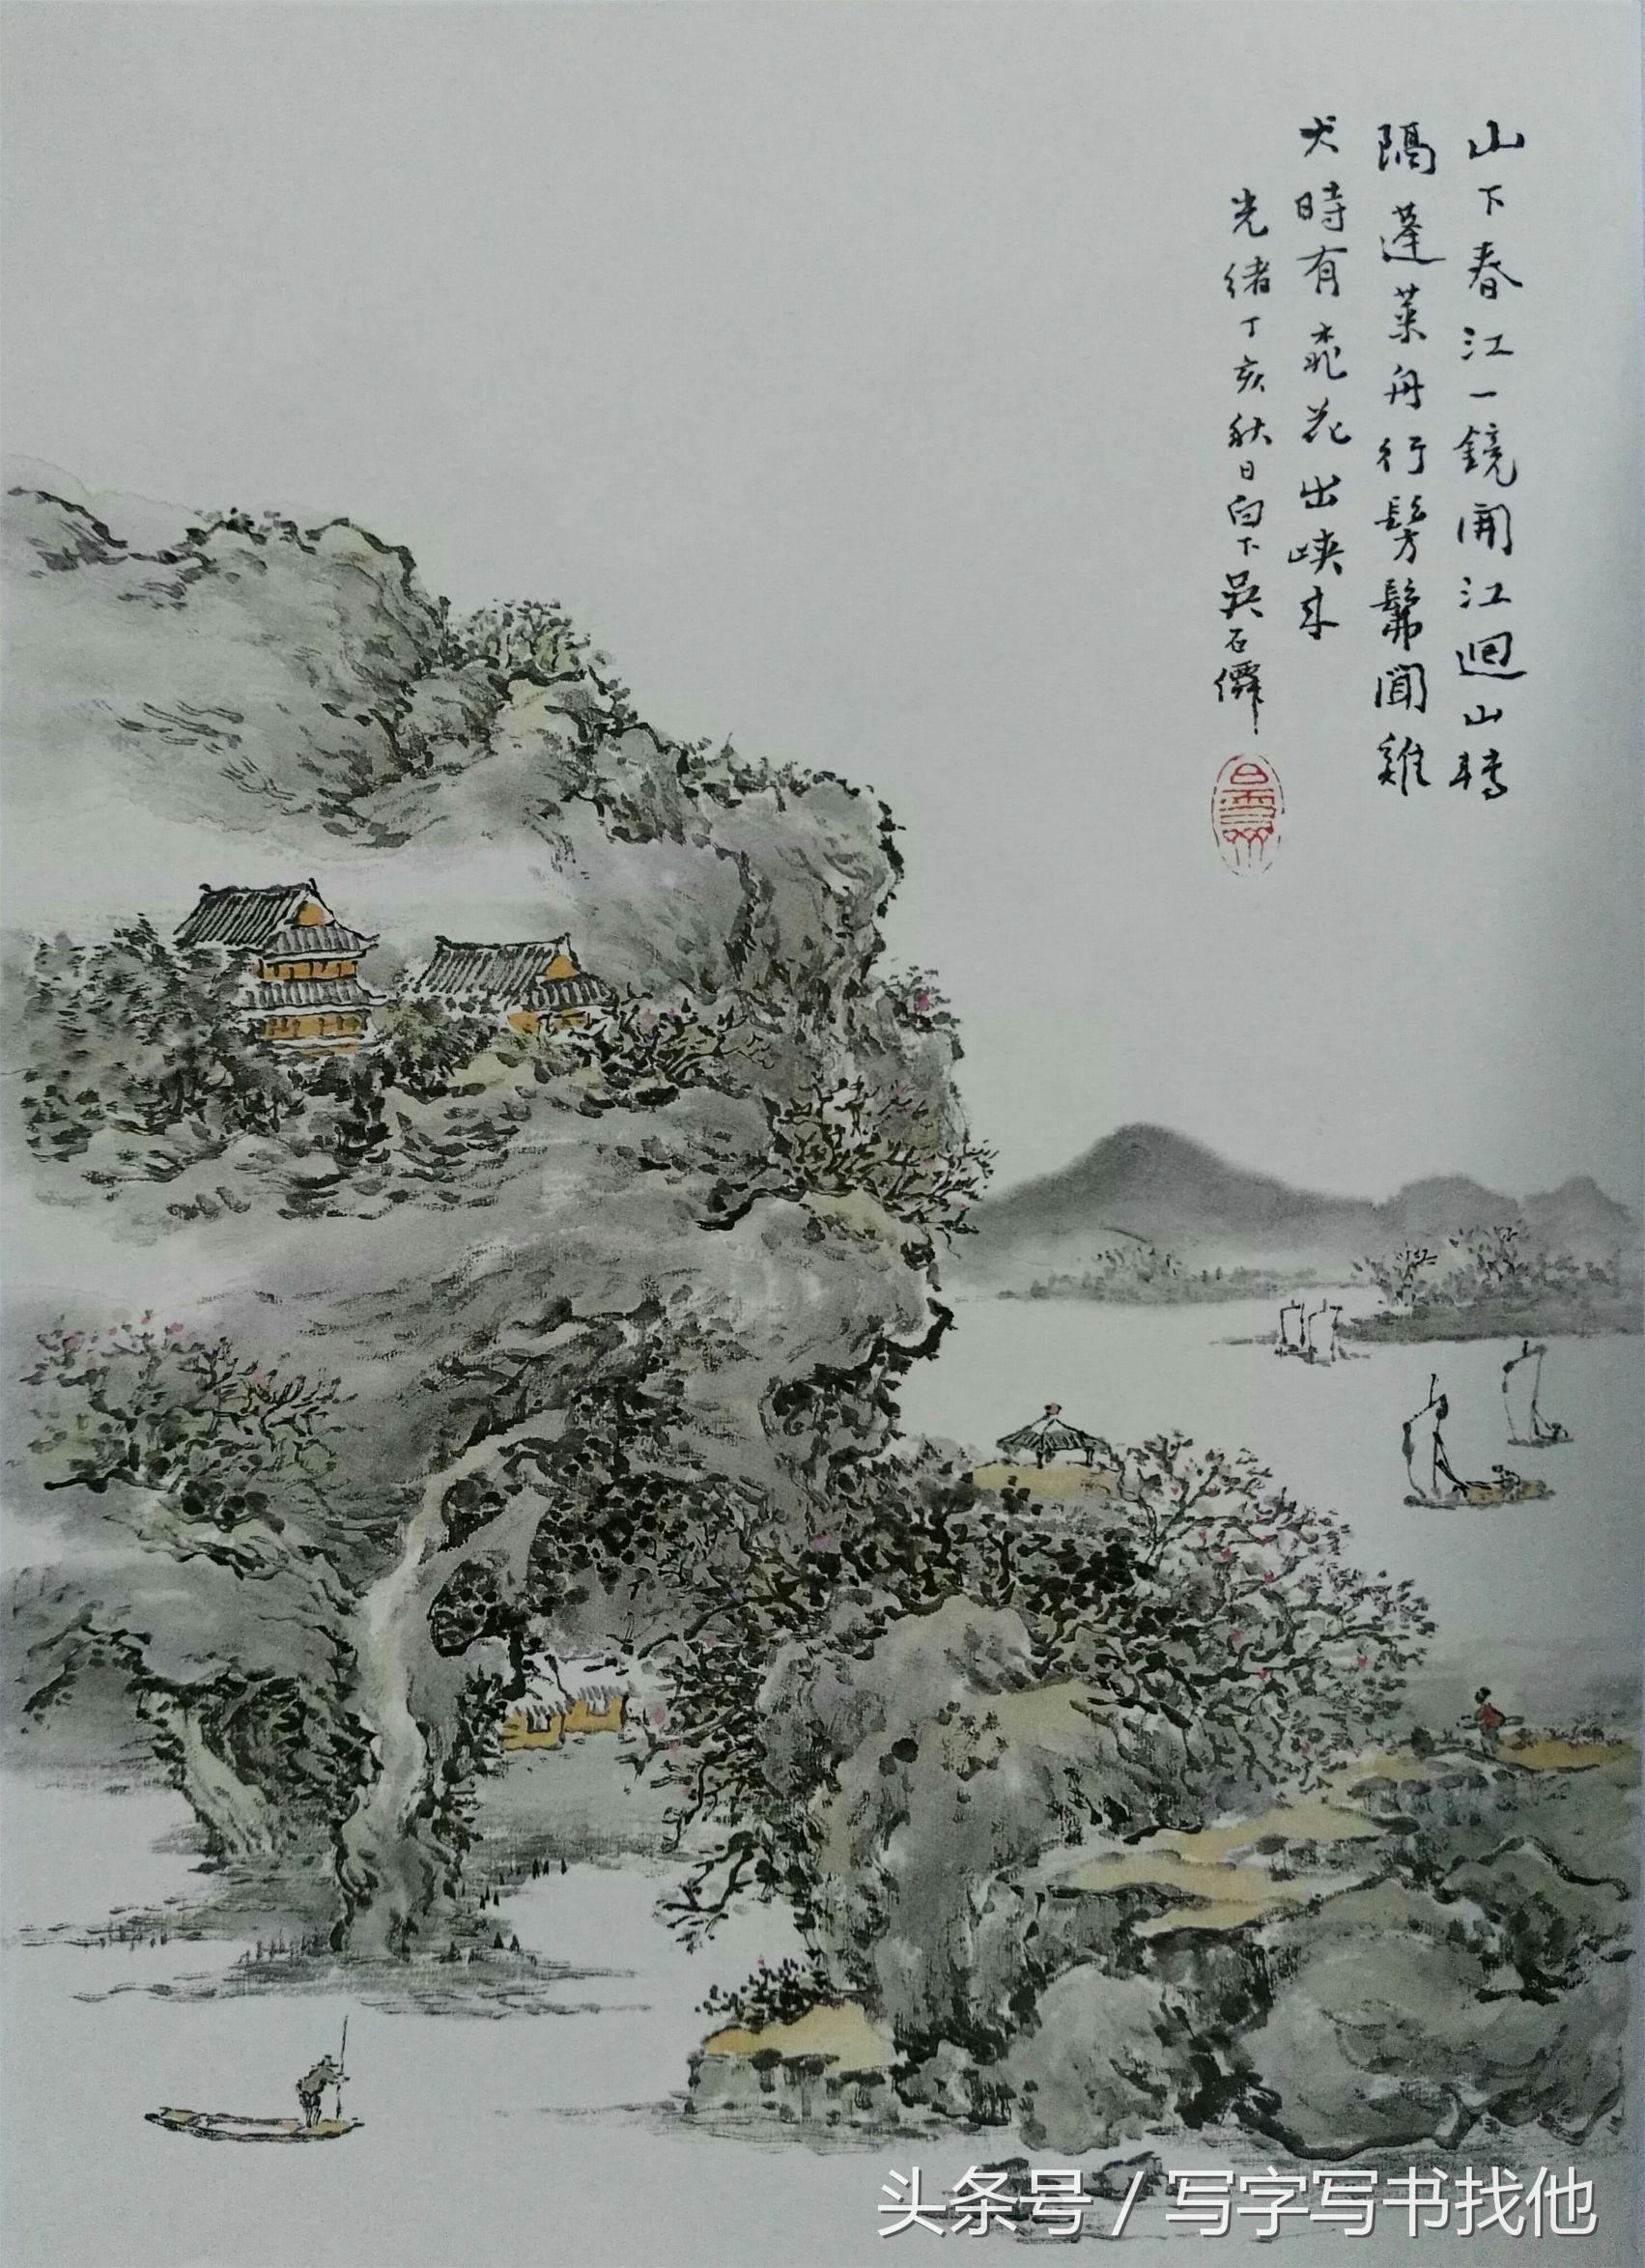 山下春江一鏡開江迴山轉
隔蓬萊舟行髣髴聞雞
犬時有桃花出峽來
光緒丁亥秋日白下吳石僊
头条号 / 写字写书找他